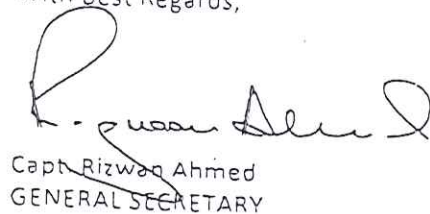 With Best Regards,
Rizwan Ahmed
Capt. Rizwan Ahmed
GENERAL SECRETARY